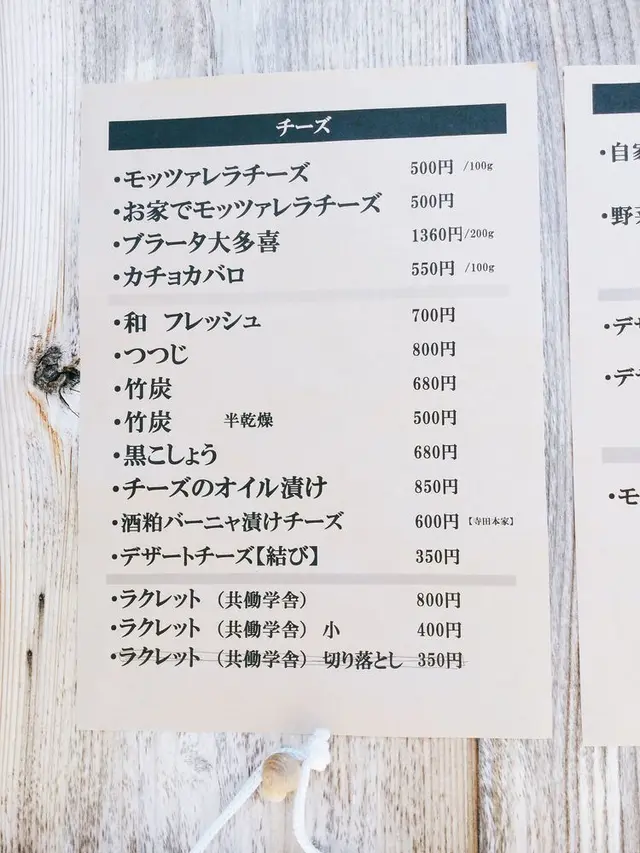 チーズ
・モッツァレラチーズ 500円 /100g
・お家でモッツァレラチーズ 500円
・ブラータ大多喜 1360円/200g
・カチョカバロ 550円 /100g
・和 フレッシュ 700円
・つつじ 800円
・竹炭 680円
・竹炭 半乾燥 500円
・黒こしょう 680円
・チーズのオイル漬け 850円
・酒粕バーニャ漬けチーズ 600円【寺田本家】
・デザートチーズ【結び】 350円
・ラクレット （共働学舎） 800円
・ラクレット （共働学舎） 小 400円
・ラクレット （共働学舎） 切り落とし 350円
・自家
・野菜
・デザ
・デ
・モ